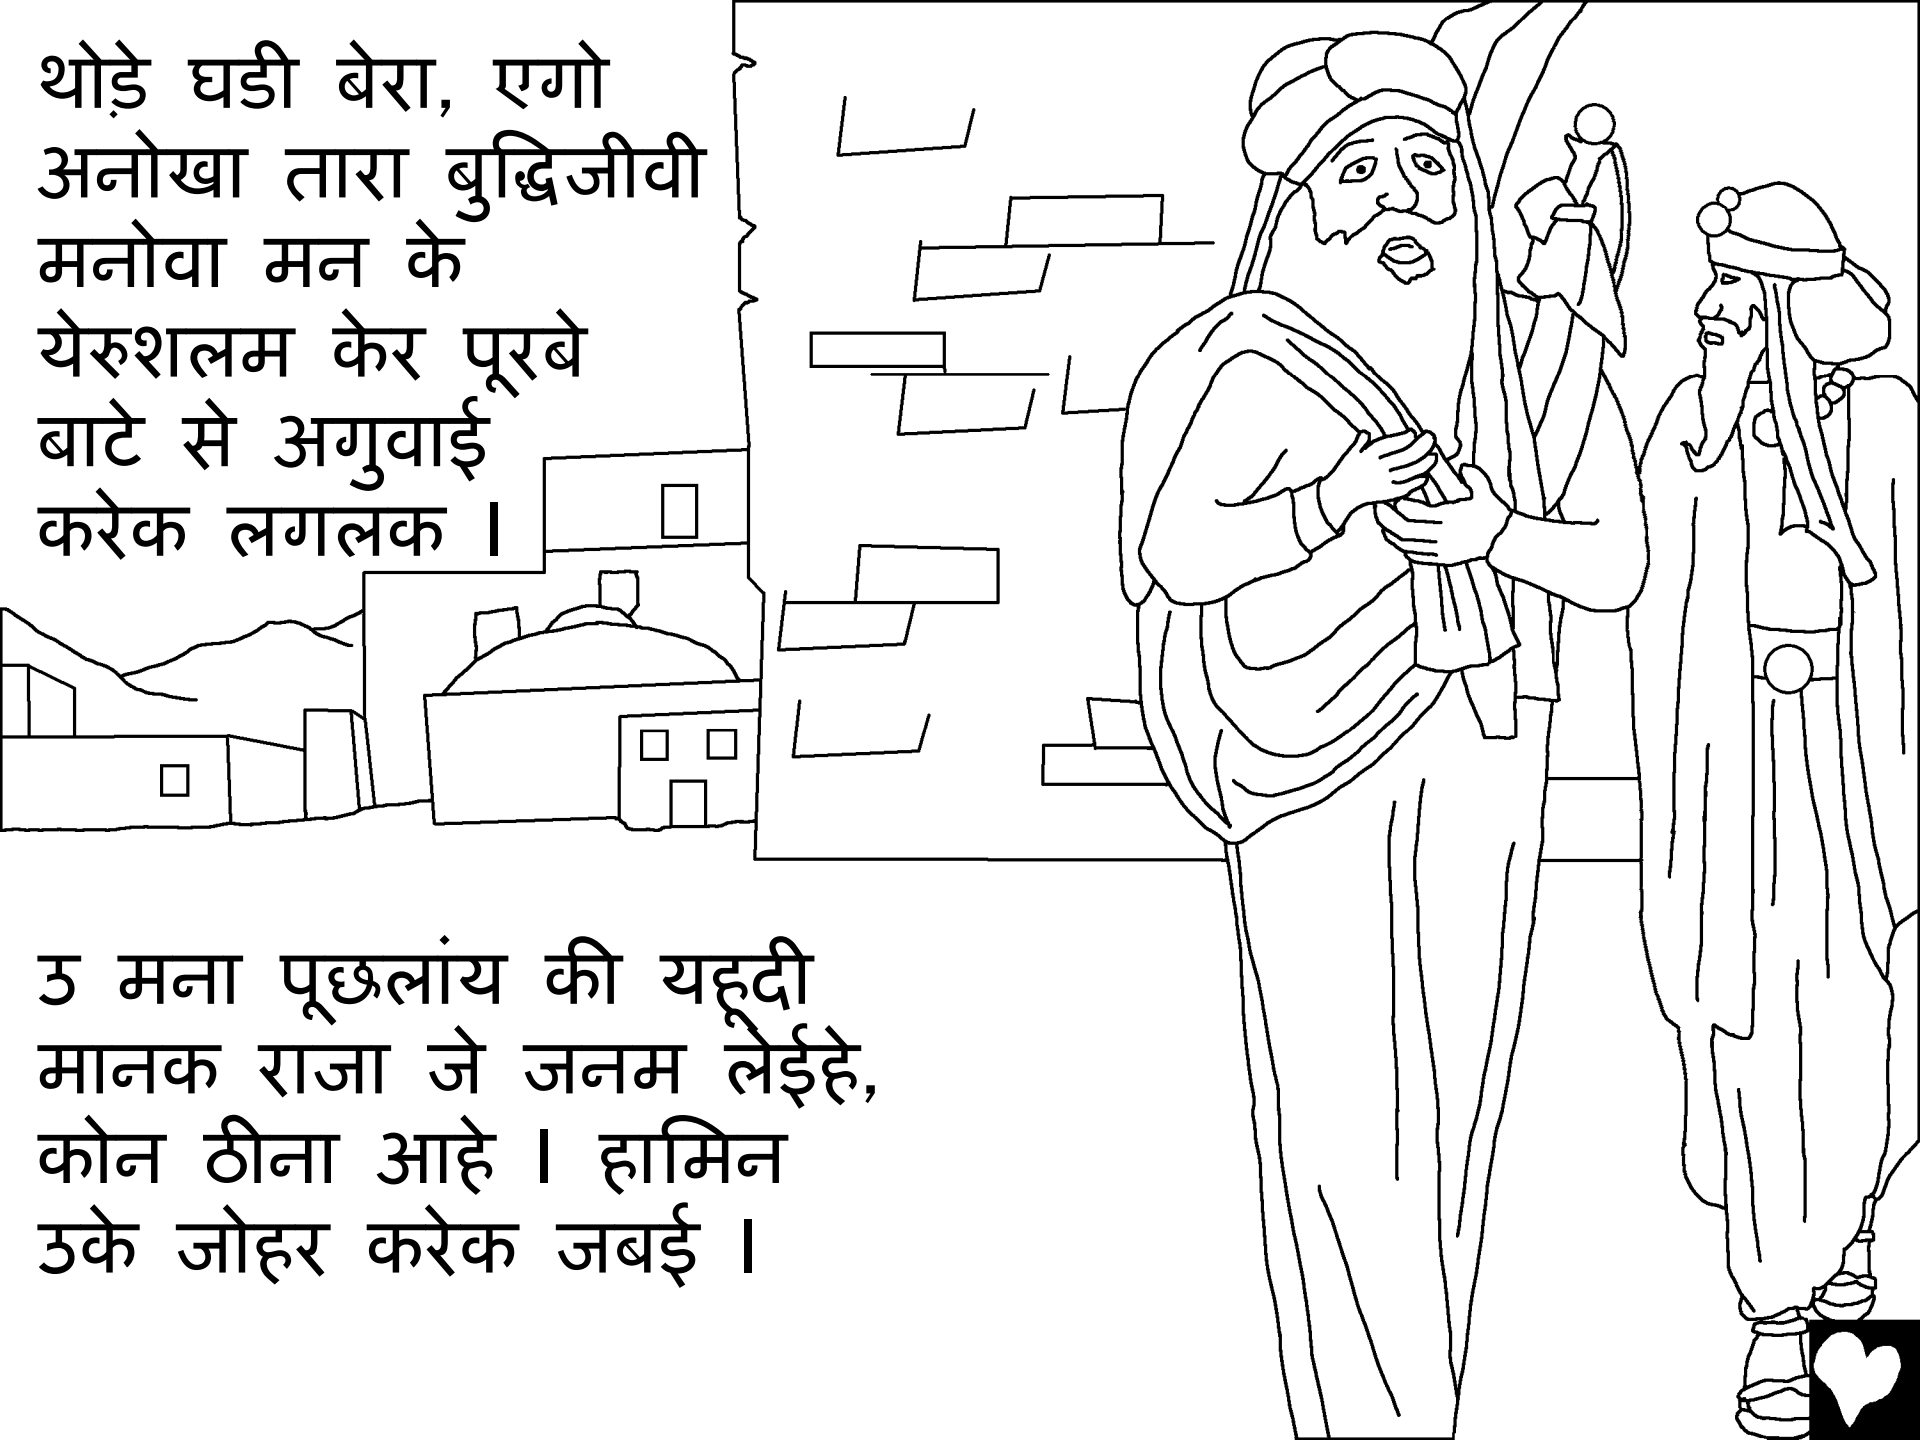 थोड़े घडी बेरा, एगो
अनोखा तारा बुद्धिजीवी
मनोवा मन के
येरुशलम केर पूरबे
बाटे से अगुवाई
करेक लगलक I
उ मना पूछलांय की यहूदी
मानक राजा जे जनम लेईहे,
कोन ठीना आहे I हामिन
उके जोहर करेक जबई I